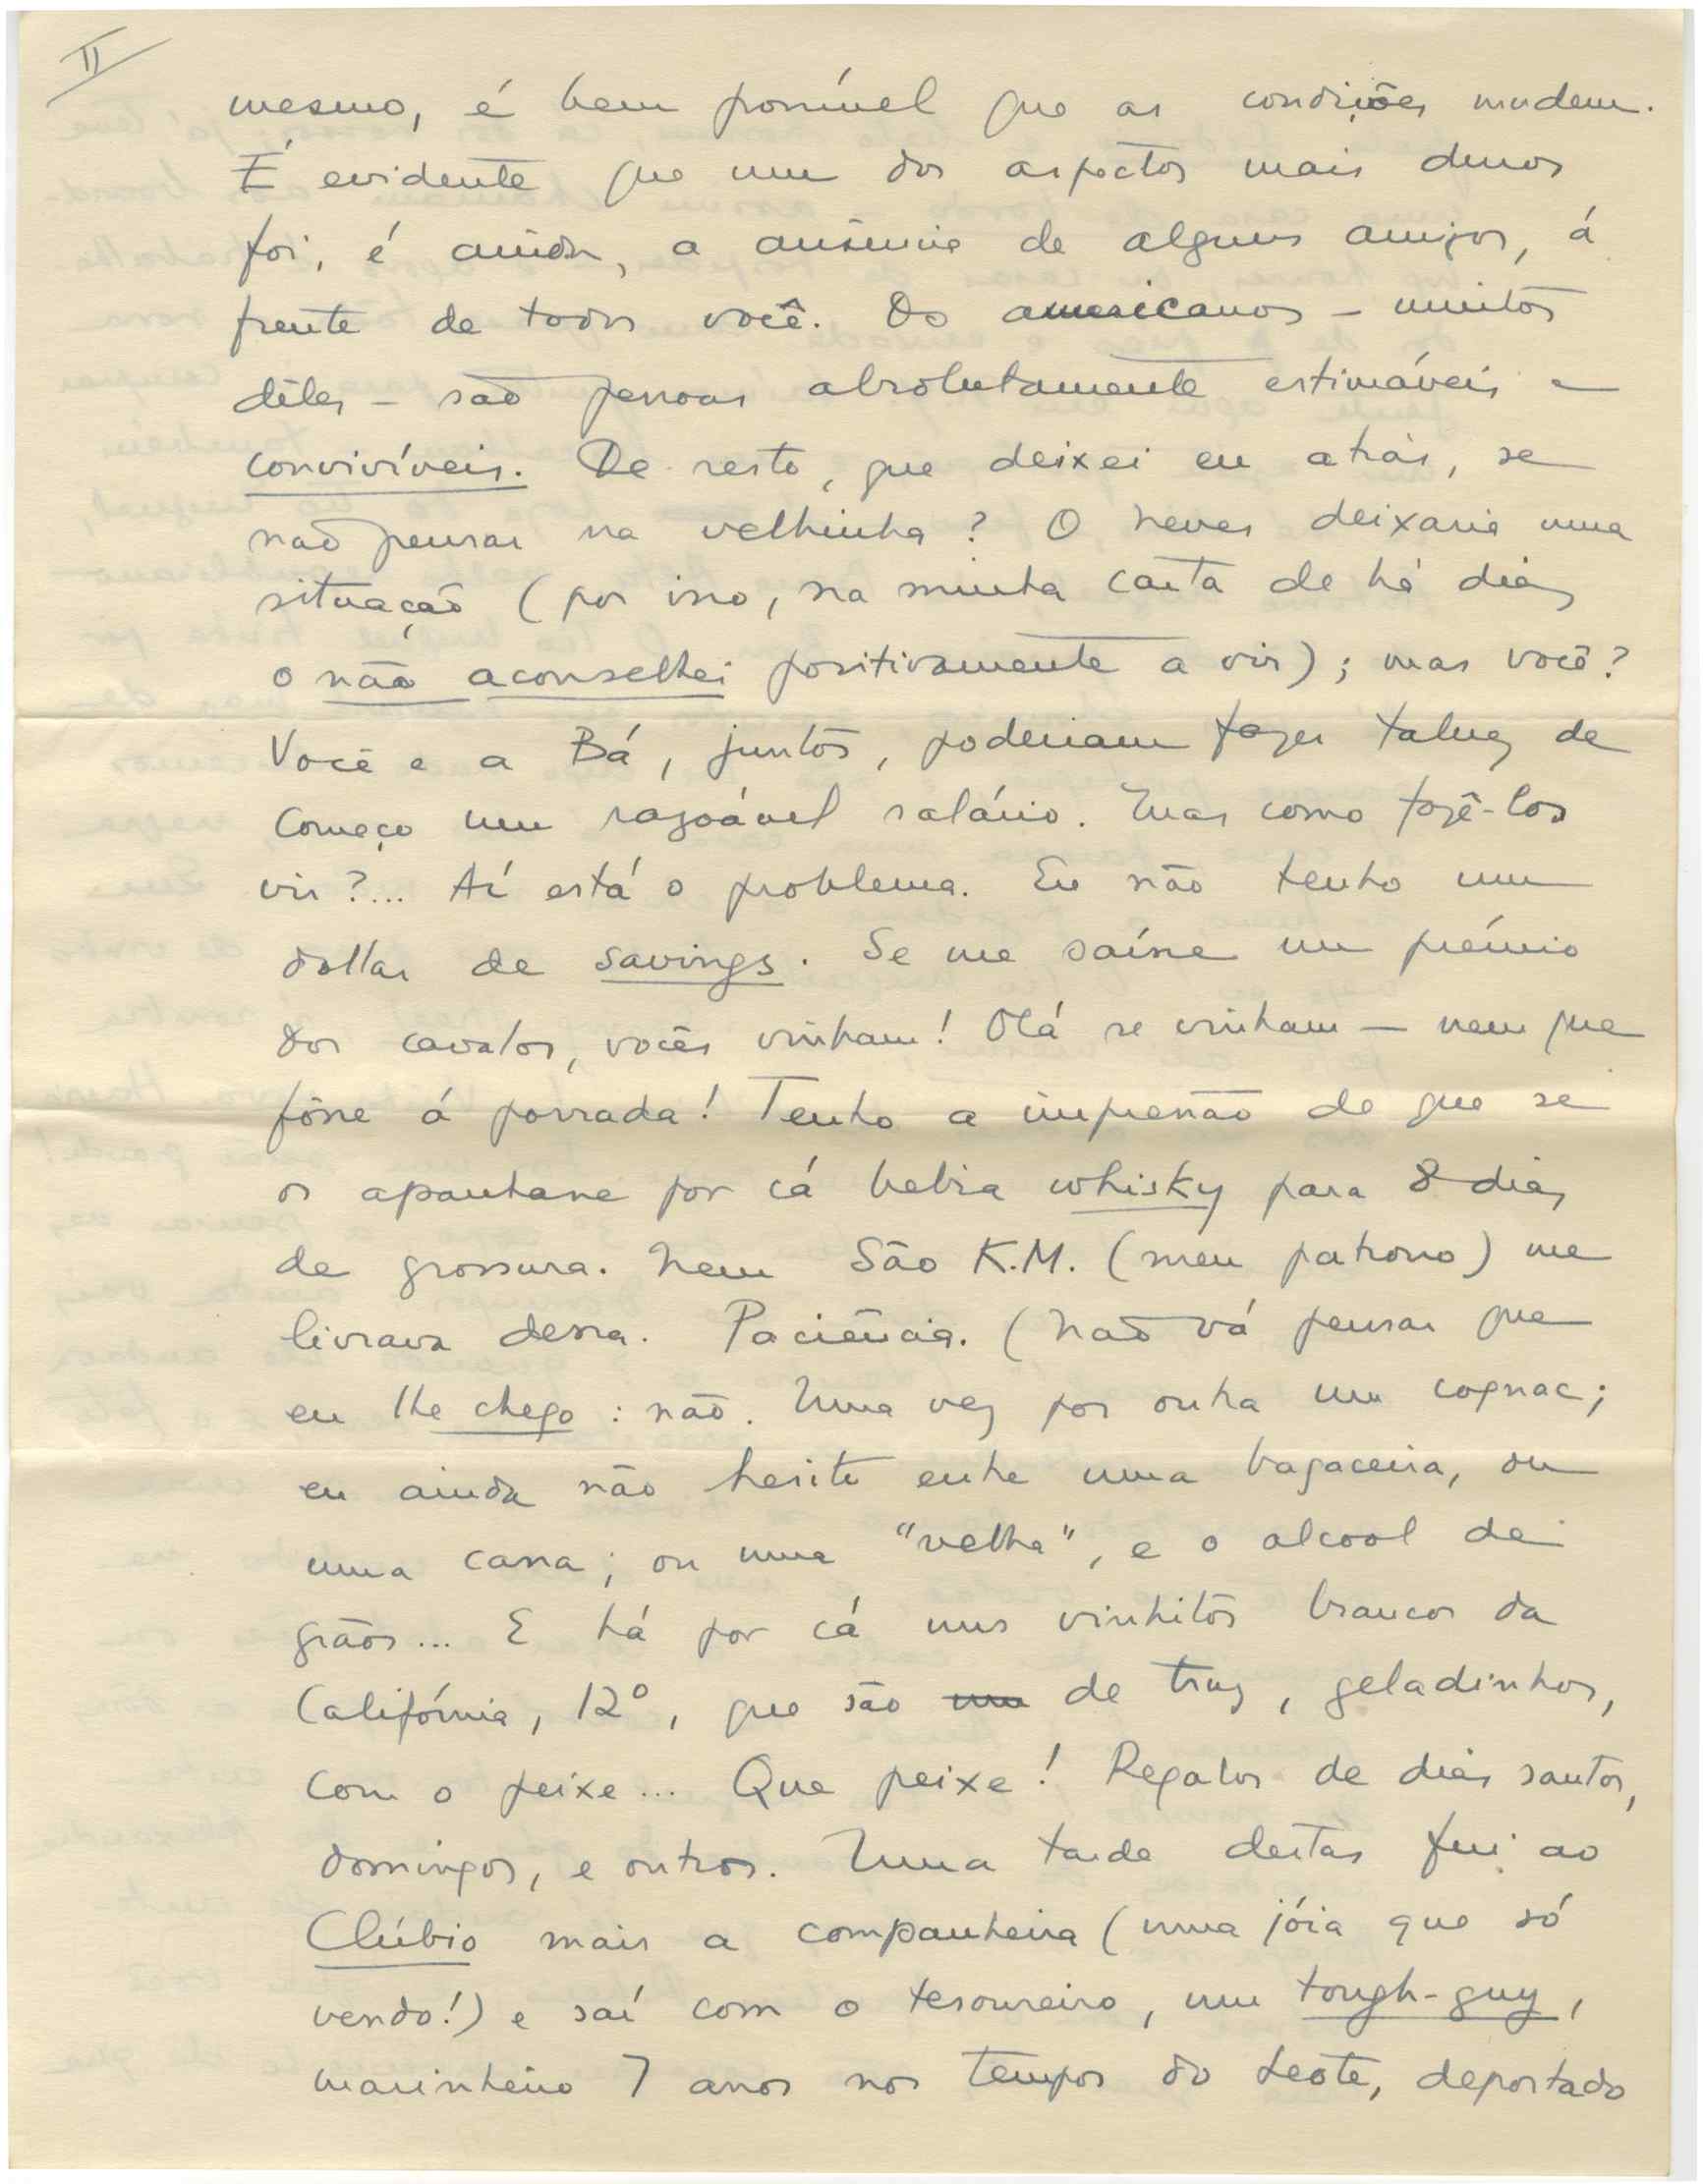 II
mesmo, é bem possível que as condições mudem.
É evidente que um dos aspectos mais duros
foi, é ainda, a ausência de alguns amigos, á
frente de todos você. Os americanos — muitos
dêles — são pessoas absolutamente estimáveis e
convivíveis. De resto, que deixei eu atrás, se
não pensar na velhinha? O Neves deixaria uma
situação (por isso, na minha carta de há dias
o não aconselhei positivamente a vir); mas você?
Você e a Bá, juntos, poderiam fazer talvez de
começo um razoável salário. Mas como fazê-los
vir?... Aí está o problema. Eu não tenho um
dollar de savings. Se me saísse um prémio
dos cavalos, vocês vinham! Olá se vinham — nem que
fôsse á porrada! Tenho a impressão de que se
os apanhasse por cá bebia whisky para 8 dias
de grossura. Nem São K.M. (meu patrono) me
livrava dessa. Paciência. (Não vá pensar que
eu lhe chego: não. Uma vez por outra um cognac;
eu ainda não hesito entre uma bagaceira, ou
uma cana; ou uma "velha", e o alcool de
grãos... E há por cá uns vinhitos brancos da
Califórnia, 12º, que são de truz, geladinhos,
com o peixe... Que peixe! Regalos de dias santos,
domingos, e outros. Uma tarde destas fui ao
Clúbio mais a companheira (uma jóia que só
vendo!) e saí com o tesoureiro, um tough-guy,
marinheiro 7 anos nos tempos do Leote, deportado